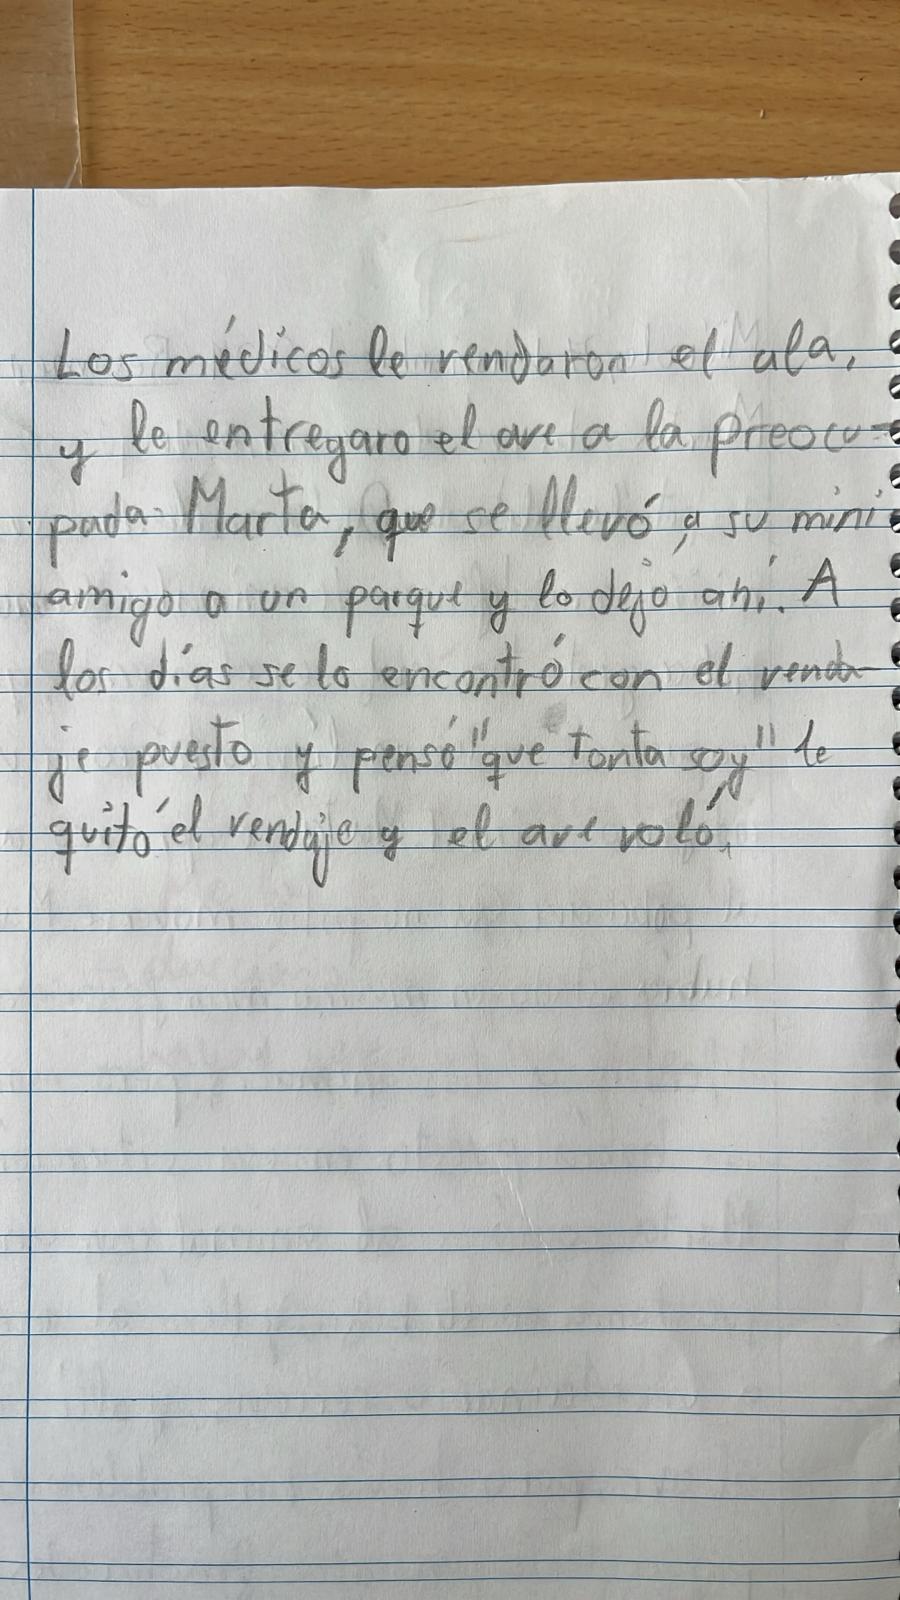 Los médicos le vendaron el ala,
y le entregaro el ave a la preocu-
pada Marta, que se llevó a su mini
amigo a un parque y lo dejó ahí. A
los días se lo encontró con el venda-
je puesto y pensó "que tonta soy" le
quitó el vendaje y el ave voló.